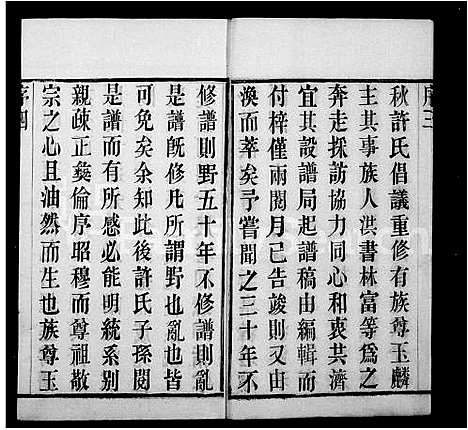 序三
秋許氏倡議重修有族尊玉麟
主其事族人洪書林富等為之
奔走採訪協力同心和衷共濟
宜其設譜局起譜稿由編輯而
付梓僅兩閱月已告竣則又由
渙而萃矣予嘗聞之三十年不
修譜則野五十年不修譜則亂
是譜旣修凡所謂野也亂也皆
可免矣余知此後許氏子孫閱
是譜而有所感必能明統系别
親疎正彜倫序昭穆而尊祖敬
宗之心且油然而生也族尊玉
序四